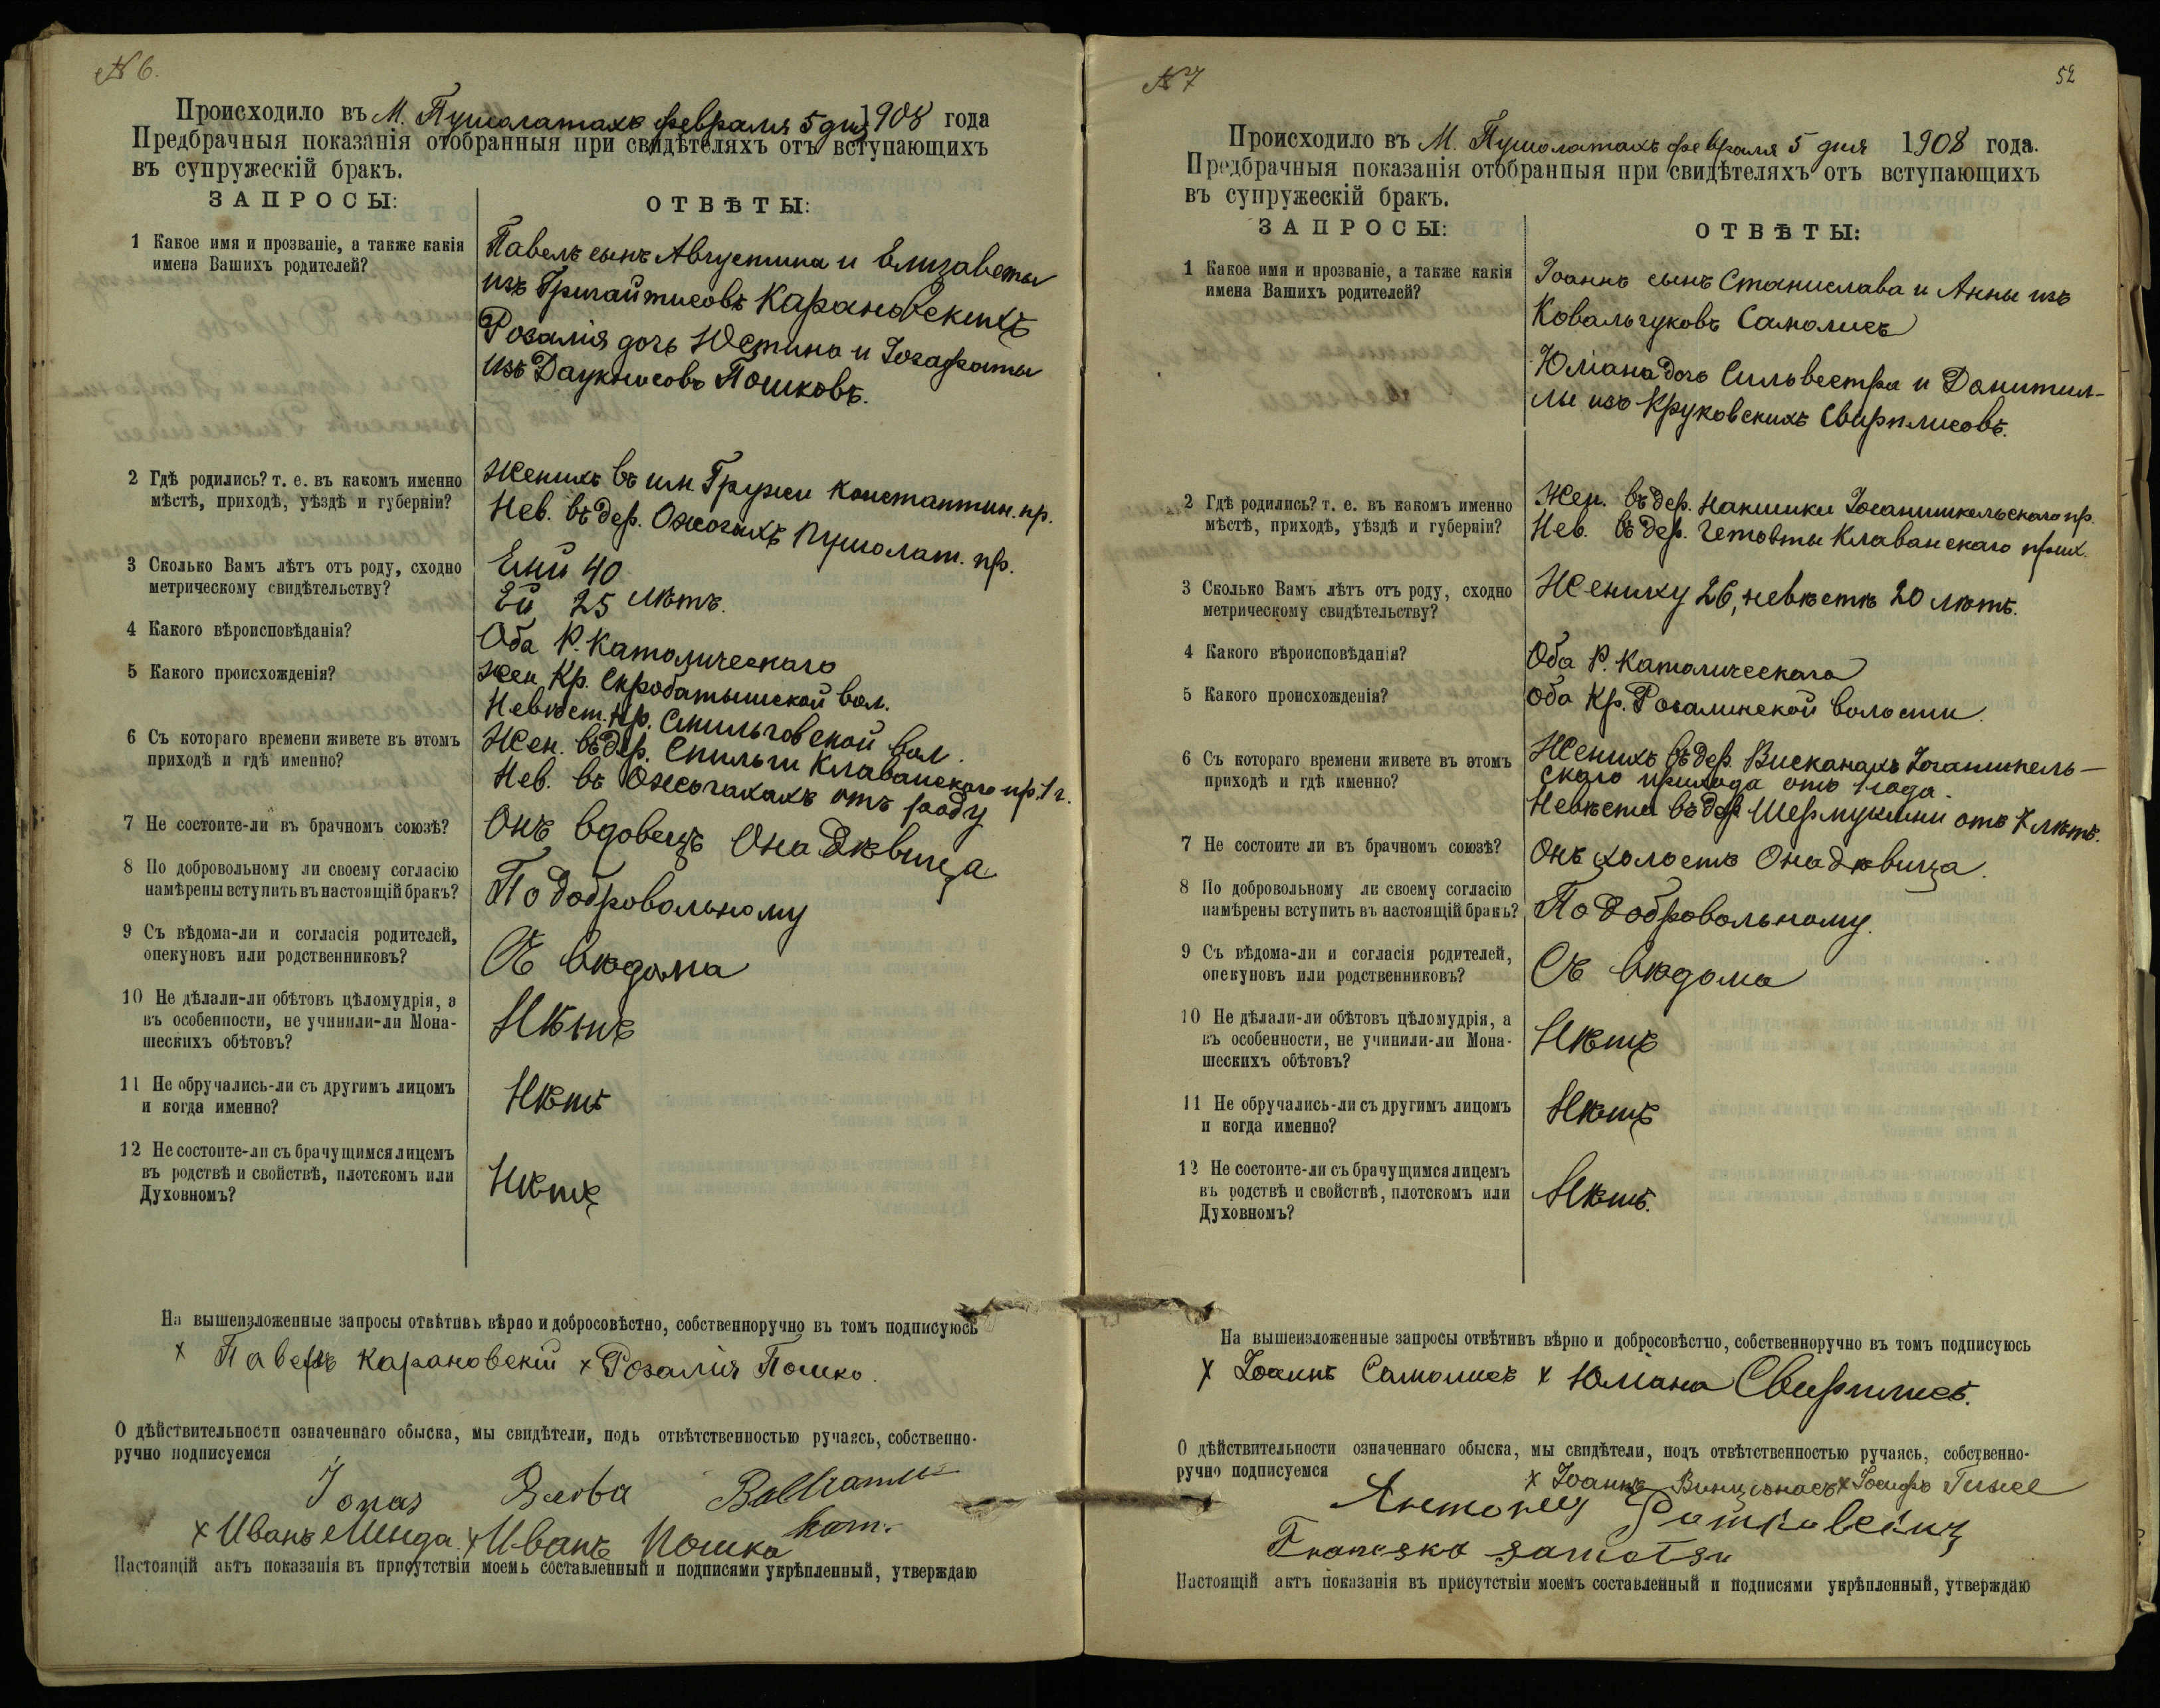 № 6.
Происходило въ М. Пушолатахъ февраля 5 дня 1908 года
Предбрачныя показанія отобранныя при свидѣтеляхъ отъ вступающихъ
въ супружескій бракъ.
ЗАПРОСЫ:
ОТВѢТЫ:
1 Какое имя и прозваніе, а также какія
имена Вашихъ родителей?
Павелъ сынъ Августина и Елизаветы
изъ Григайтисовъ Карановскихъ
Розалія дочь Юстина и Іозафаты
изъ Даукнисовъ Пошковъ.
2 Гдѣ родились? т. е. въ какомъ именно
мѣстѣ, приходѣ, уѣздѣ и губерніи?
Женихъ въ им. Гружи Константин. пр.
Нев. въ дер. Пушолат. пр.
3 Сколько Вамъ лѣтъ отъ роду, сходно
метрическому свидѣтельству?
Ему 40
Ей 25 лѣтъ.
4 Какого вѣроисповѣданія?
Оба Р. Католическаго
5 Какого происхожденія?
Жен. Кр. Скробатышской вол.
Невѣст. Кр. Смильговской вол.
6 Съ котораго времени живете въ этомъ
приходѣ и гдѣ именно?
Жен. въ дер. Смильги Клаванскаго пр. 1 г.
Нев. въ отъ роду
7 Не состоите-ли въ брачномъ союзѣ?
Онъ вдовецъ Она дѣвица
8 По добровольному ли своему согласію
намѣрены вступить въ настоящій бракъ?
По добровольному
9 Съ вѣдома-ли и согласія родителей,
опекуновъ или родственниковъ?
Съ вѣдома
10 Не дѣлали-ли обѣтовъ цѣломудрія, а
въ особенности, не учинили-ли Мона-
шескихъ обѣтовъ?
Нѣтъ
11 Не обручались-ли съ другимъ лицомъ
и когда именно?
Нѣтъ
12 Не состоите-ли съ брачущимся лицемъ
въ родствѣ и свойствѣ, плотскомъ или
Духовномъ?
Нѣтъ
На вышеизложенные запросы отвѣтивъ вѣрно и добросовѣстно, собственноручно въ томъ подписуюсь
х Павелъ Карановскій х Розалія Пошко.
О дѣйствительности означеннаго обыска, мы свидѣтели, подъ отвѣтственностью ручаясь, собственно-
ручно подписуемся
Jonas
х Иванъ Минда. х Иванъ Пошка
Настоящій актъ показанія въ присутствіи моемъ составленный и подписями укрѣпленный, утверждаю
№ 7
52
Происходило въ М. Пушолатахъ февраля 5 дня 1908 года.
Предбрачныя показанія отобранныя при свидѣтеляхъ отъ вступающихъ
въ супружескій бракъ.
ЗАПРОСЫ:
ОТВѢТЫ:
1 Какое имя и прозваніе, а также какія
имена Вашихъ родителей?
Іоаннъ сынъ Станислава и Анны изъ
Ковальчуковъ Самолисъ
Юліана дочь Сильвестра и Домитил-
лы изъ Круковскихъ Свирплисовъ.
2 Гдѣ родились? т. е. въ какомъ именно
мѣстѣ, приходѣ, уѣздѣ и губерніи?
Жен. въ дер. Накишки Іоганишкельскаго пр.
Нев. въ дер. Гетовты Клаванскаго прих.
3 Сколько Вамъ лѣтъ отъ роду, сходно
метрическому свидѣтельству?
Жениху 26, невѣстѣ 20 лѣтъ.
4 Какого вѣроисповѣданія?
Оба Р. Католическаго
5 Какого происхожденія?
Оба Кр. Розалинской волости.
6 Съ котораго времени живете въ этомъ
приходѣ и гдѣ именно?
Женихъ въ дер. Висканахъ Іоганишкель-
скаго прихода отъ 1 года.
Невѣста въ дер. отъ лѣтъ.
7 Не состоите ли въ брачномъ союзѣ?
Онъ холостъ Она дѣвица.
8 По добровольному ли своему согласію
намѣрены вступить въ настоящій бракъ?
По добровольному.
9 Съ вѣдома-ли и согласія родителей,
опекуновъ или родственниковъ?
Съ вѣдома
10 Не дѣлали-ли обѣтовъ цѣломудрія, а
въ особенности, не учинили-ли Мона-
шескихъ обѣтовъ?
Нѣтъ
11 Не обручались-ли съ другимъ лицомъ
и когда именно?
Нѣтъ
12 Не состоите-ли съ брачущимся лицемъ
въ родствѣ и свойствѣ, плотскомъ или
Духовномъ?
Нѣтъ.
На вышеизложенные запросы отвѣтивъ вѣрно и добросовѣстно, собственноручно въ томъ подписуюсь
х Іоаннъ Самолисъ х Юліана Свирплисъ.
О дѣйствительности означеннаго обыска, мы свидѣтели, подъ отвѣтственностью ручаясь, собственно-
ручно подписуемся
х Іоаннъ Винцюнасъ х Іосифъ
Антоній
Настоящій актъ показанія въ присутствіи моемъ составленный и подписями укрѣпленный, утверждаю